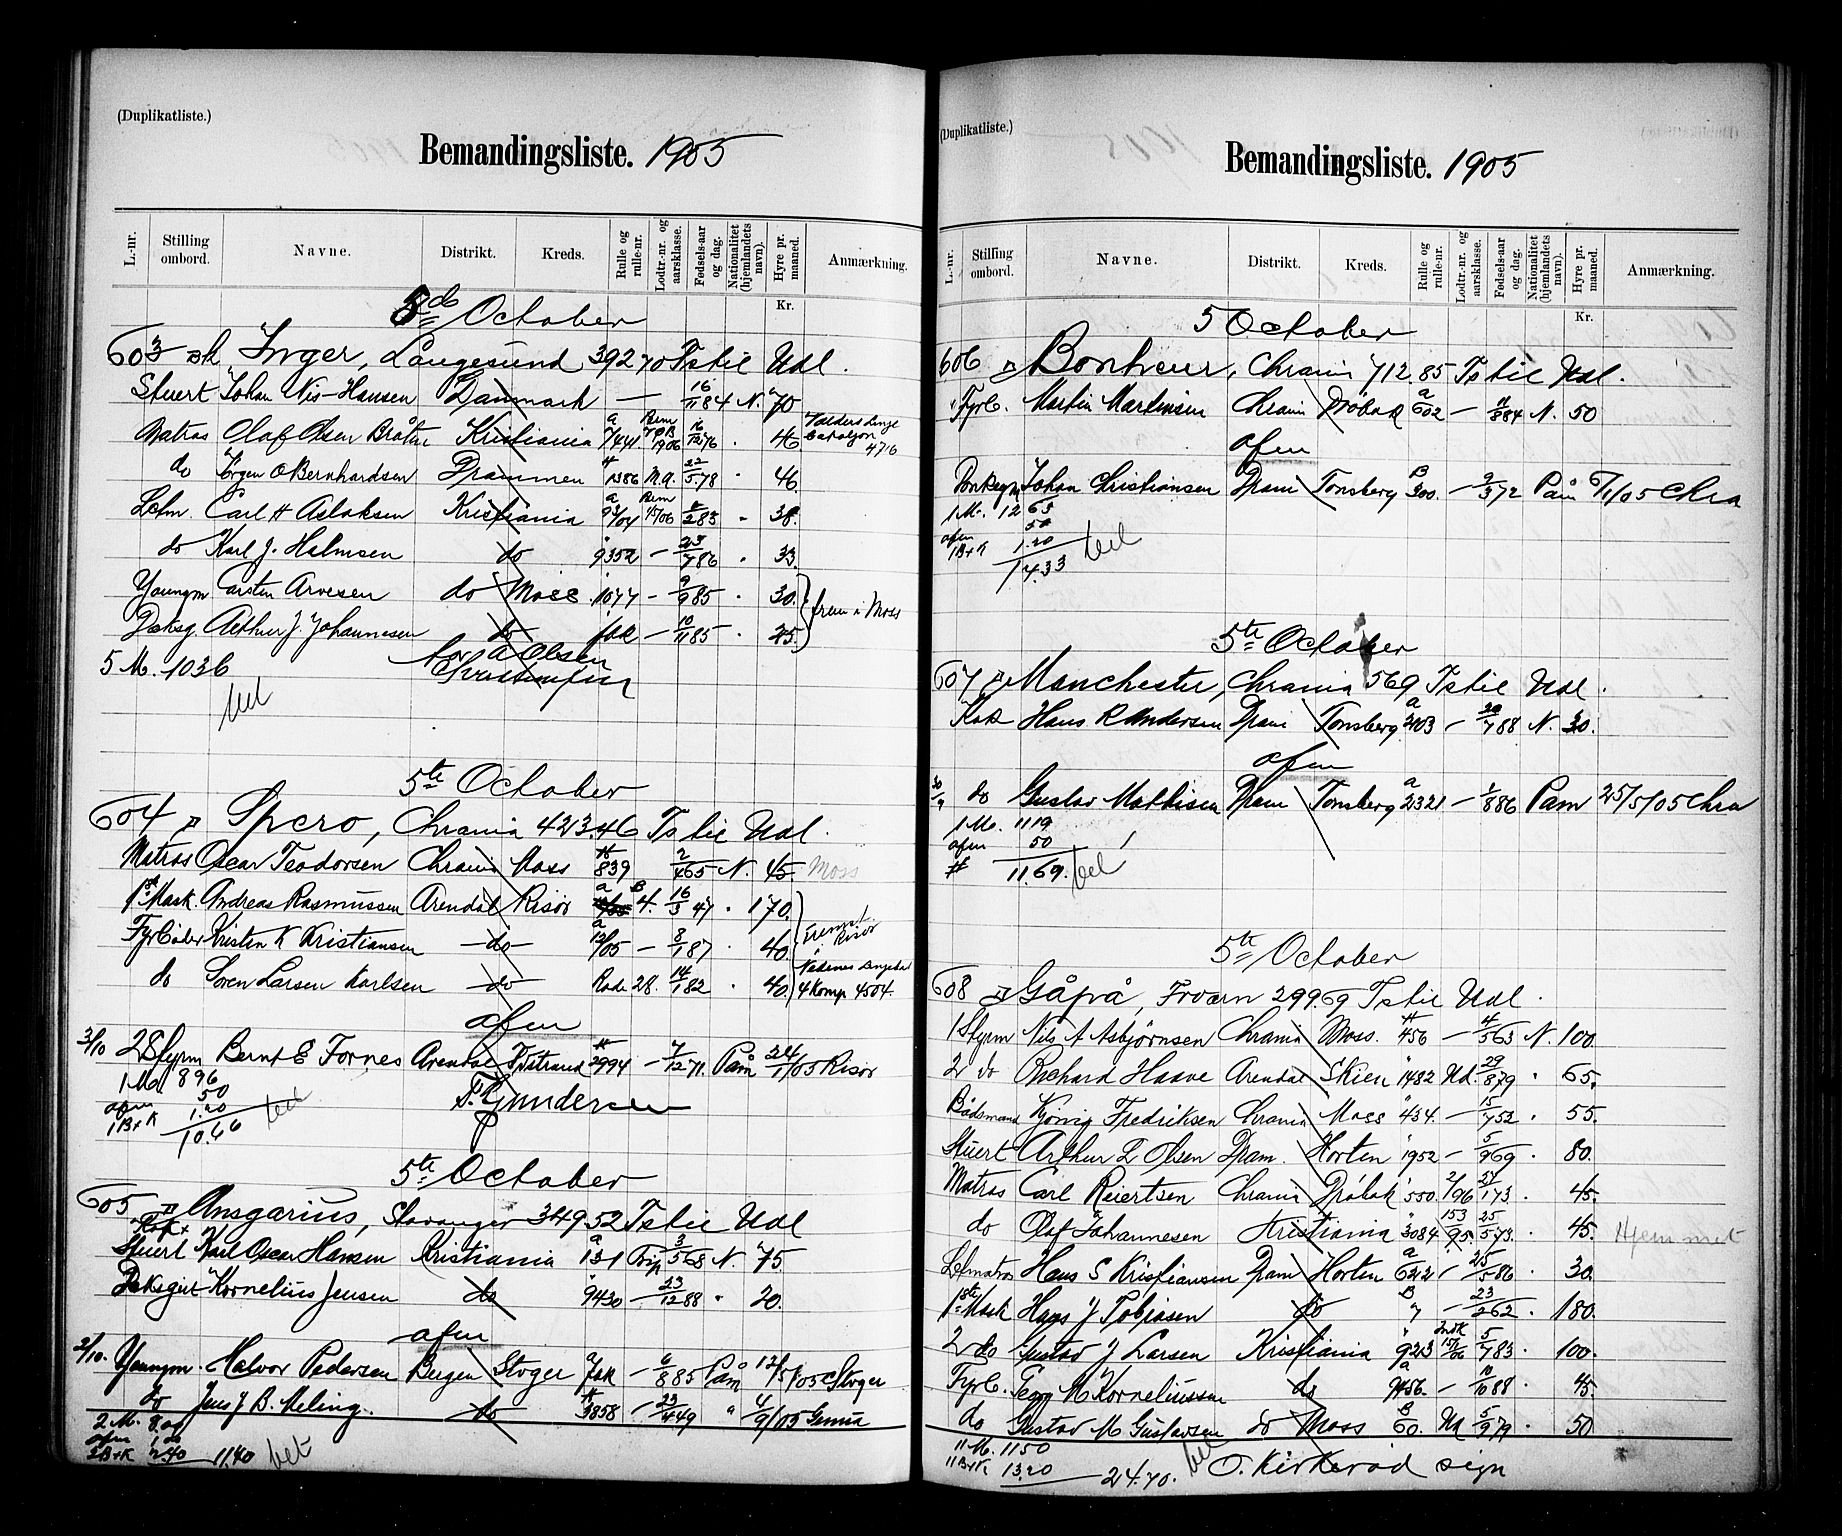 (Duplikatliste.)
Bemandingsliste. 1905
L.-nr. Stilling ombord. Navne. Distrikt. Kreds. Rulle og rulle-nr. Lodtr.-nr. og aarsklasse. Fødsels-aar og dag. Nationalitet (hjemlandets navn). Hyre pr. maaned. Anmærkning.
Kr.
5 October
603 Inger, Langesund 392 70 Ts til Udl.
Stuert Johan Nis-Hansen Danmark — 16/11 84 N. 70
Matros Olaf Olsen Bråten Kristiania 7441 1906 16/12 76 46 Valders Linje Bataljon 4716
do Jørgen O Bernhardsen Drammen 1386 22/5 78 46
Letm. Carl H Aslaksen Kristiania 93/04 45/06 2/2 83 38.
do Karl J. Halmsen do 9352 — 23/7 86 33.
Youngm Carsten Arvesen do Moss 1077 — 9/9 85 30. frem i Moss
Deksg. Arthur J. Johannesen do — 10/11 85 25.
5 M. 10 36
for A Olsen
bet
5te October
604 Spero, Chrania 423.46 Ts til Udl.
Matros Oscar Teodorsen Chrania Moss 839 2/4 65 N. 45 Moss
1ste Mask. Andreas Rasmussen Arendal Risør 4. 16/5 47 170. Fremst. i Risør
Fyrbøder Kristen K Kristiansen do 12/05 — 8/1 87 40.
do Søren Larsen Karlsen do 28. 14/1 82 40. Nedenes Linjebat 4 Komp 4504.
afm
3/10 2 Styrm Bernt E Fornes Arendal 2994 — 7/12 71. Påm 24/1/05 Risør
1 M. 8 96
afm 50
1 B+K 1.20
10.66 bet
T. Gundersen
5te October
605 Ansgarius, Stavanger 349 52 Ts til Udl
Kok + Stuert Karl Oscar Hansen Kristiania 131 3/5 68 N. 75
Deksgut Kornelius Jensen do 9430 — 23/12 88 20.
afm
2/10. Youngm. Halvor Pedersen Bergen Stvger — 6/8 85 Påm 12/5/05 Stvger
do Jens J. B. Meling. do 3858 — 23/4 49 4/9/05 Genua
2 M. 8.00
afm 1,00
2 B+K 2.40 11.40 bet
(Duplikatliste.)
Bemandingsliste. 1905
L.-nr. Stilling ombord. Navne. Distrikt. Kreds. Rulle og rulle-nr. Lodtr.-nr. og aarsklasse. Fødsels-aar og dag. Nationalitet (hjemlandets navn). Hyre pr. maaned. Anmærkning.
Kr.
5 October
606 Bonheur, Chrania 712.85 Ts til Udl.
Fyrb. Martin Martinsen Chrania Drøbak 602 — 11/9 84 N. 50
afm
Donkeym Johan Christiansen Dram Tønsberg B 300. — 2/3 72 Påm 6/1/05 Chra
1 M. 12 63
afm 50
1 B+K 1.20
14.33 bet
5te October
607 Manchester, Chrania 569 Ts til Udl.
Kok Hans R Andersen Dram Tønsberg 2403 — 20/7 88 N. 30.
afm
30/9 do Gustav Mathisen Dram Tønsberg 2321 — 1/8 86 Påm 25/5/05 Chra
1 M. 11 19
afm 50
11.69. bet
5te October
608 Gåpå, Fværn 299.69 Ts til Udl.
1 Styrm Nils A Asbjörnsen Chrania Moss. 456 — 4/5 63 N. 100.
2 do Richard Haave Arendal Skien 1482 Ud. 29/8 79 65.
Bådsmand Fredriksen Chrania Moss 434. — 15/7 52 55.
Stuert Arthur L Olsen Dram. Horten 1952 — 5/9 69 80.
Matros Carl Reiertsen Chrania Drøbak 550. 2/96 27/1 73 45.
do Olaf Johannesen Kristiania 3084 153/95. 25/5 73. 45.
Letmatros Hans S Kristiansen Dram Horten 622 — 25/5 86 30.
1ste Mask Hans J Tobiasen do B — 23/2 62 180.
2 do Gustav J Larsen Kristiania 9213 5/7 83 100.
Fyrb. Georg M Korneliussen do 9456 — 11/10 88 45.
do Gustav M Gustavsen do Moss B 60. Ud 5/9 79 50
11 M. 11.50
11 B+K 13.20 24.70. bet
O. Kirkerød sign